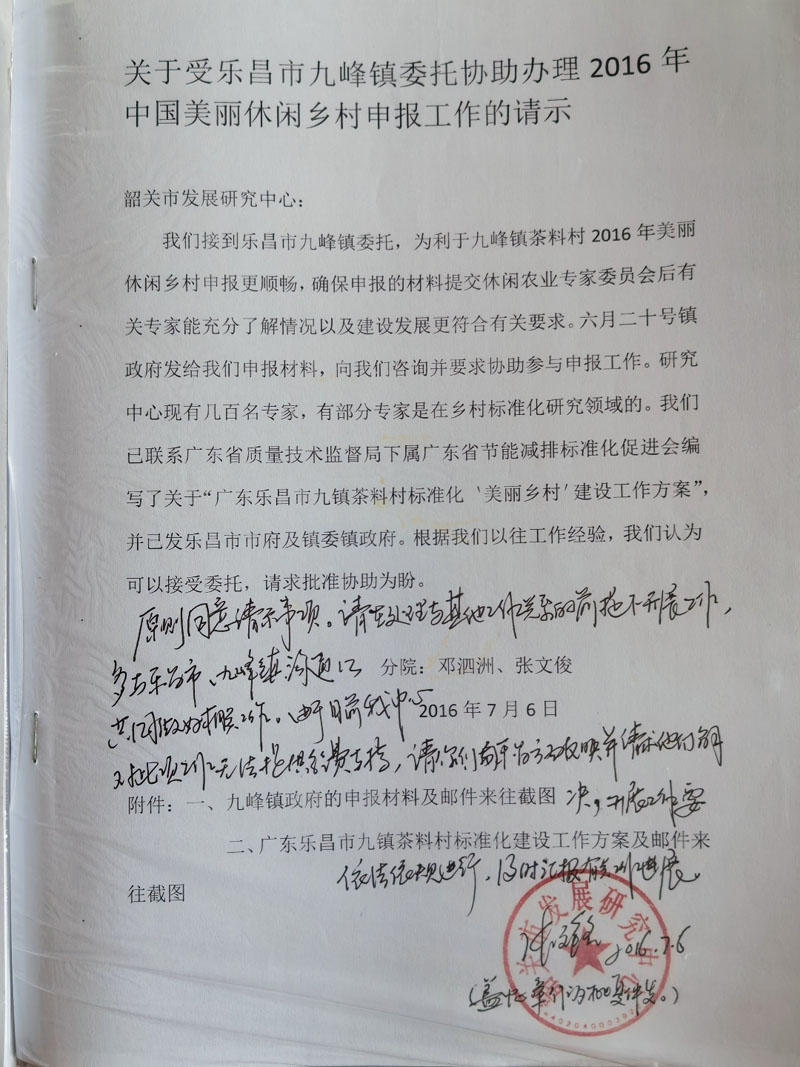 关于受乐昌市九峰镇委托协助办理2016年
中国美丽休闲乡村申报工作的请示
韶关市发展研究中心：
我们接到乐昌市九峰镇委托，为利于九峰镇茶料村2016年美丽
休闲乡村申报更顺畅，确保申报的材料提交休闲农业专家委员会后有
关专家能充分了解情况以及建设发展更符合有关要求。六月二十号镇
政府发给我们申报材料，向我们咨询并要求协助参与申报工作。研究
中心现有几百名专家，有部分专家是在乡村标准化研究领域的。我们
已联系广东省质量技术监督局下属广东省节能减排标准化促进会编
写了关于“广东乐昌市九镇茶料村标准化‘美丽乡村’建设工作方案”，
并已发乐昌市市府及镇委镇政府。根据我们以往工作经验，我们认为
可以接受委托，请求批准协助为盼。
原则同意请示事项。请在处理与其他工作关系的前提下开展工作，
多与乐昌市、九峰镇沟通
分院：邓泗洲、张文俊
共同做好有关工作。由于目前我中心
2016年7月6日
对此项工作无法提供经费支持，请你们向有关方面反映并请求他们解
附件：一、九峰镇政府的申报材料及邮件来往截图
决，开展工作要
二、广东乐昌市九镇茶料村标准化建设工作方案及邮件来
依法依规进行，及时汇报有关工作进展。
往截图
市发展研究中心
2016.7.6